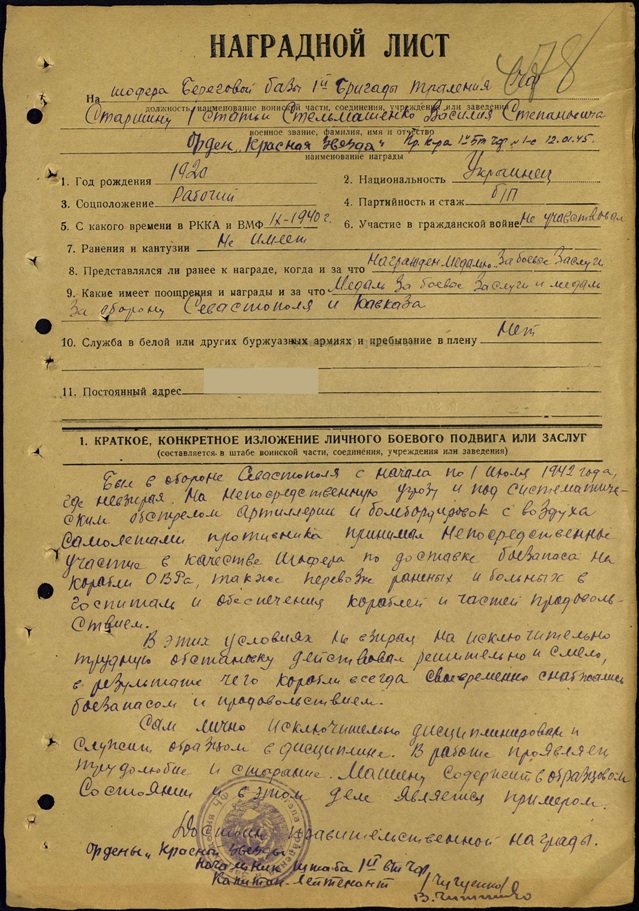 НАГРАДНОЙ ЛИСТ
На шофера Береговой базы 1й Бригады траления ЧФ
должность, наименование воинской части, соединения, учреждения или заведения
Старшину 1 статьи Стельмашенко Василия Степановича
военное звание, фамилия, имя и отчество
Орден „Красная звезда" Пр. к-ра 1й БТ ЧФ 12.01.45.
наименование награды
1. Год рождения 1920
2. Национальность Украинец
3. Соцположение Рабочий
4. Партийность и стаж б/п
5. С какого времени в РККА и ВМФ IX-1940 г.
6. Участие в гражданской войне Не участвовал
7. Ранения и кантузии Не имеет
8. Представлялся ли ранее к награде, когда и за что Награжден медалью За боевые заслуги
9. Какие имеет поощрения и награды и за что Медаль За боевые заслуги и медаль
За оборону Севастополя и Кавказа
10. Служба в белой или других буржуазных армиях и пребывание в плену Нет
11. Постоянный адрес
1. КРАТКОЕ, КОНКРЕТНОЕ ИЗЛОЖЕНИЕ ЛИЧНОГО БОЕВОГО ПОДВИГА ИЛИ ЗАСЛУГ
(составляется в штабе воинской части, соединения, учреждения или заведения)
Был в обороне Севастополя с начала по 1 июля 1942 года,
где невзирая на непосредственную угрозу и под систематиче-
ским обстрелом артиллерии и бомбордировок с воздуха
самолетами противника принимал непосредственные
участие в качестве шофера по доставке боезапаса на
корабли ОВРа, также перевозке раненых и больных в
госпиталь и обеспечения кораблей и частей продоволь-
ствием.
В этих условиях не взирая на исключительно
трудную обстановку действовал решительно и смело,
в результате чего корабли всегда своевременно снабжались
боезапасом и продовольствием.
Сам лично исключительно дисциплинирован и
служит образцом в дисциплине. В работе проявляет
трудолюбие и старание. Машину содержит в образцовом
состоянии и в этом деле является примером.
Достоин правительственной награды.
Ордены „Красной звезды"
Начальник штаба 1й БТ ЧФ
Капитан-лейтенант